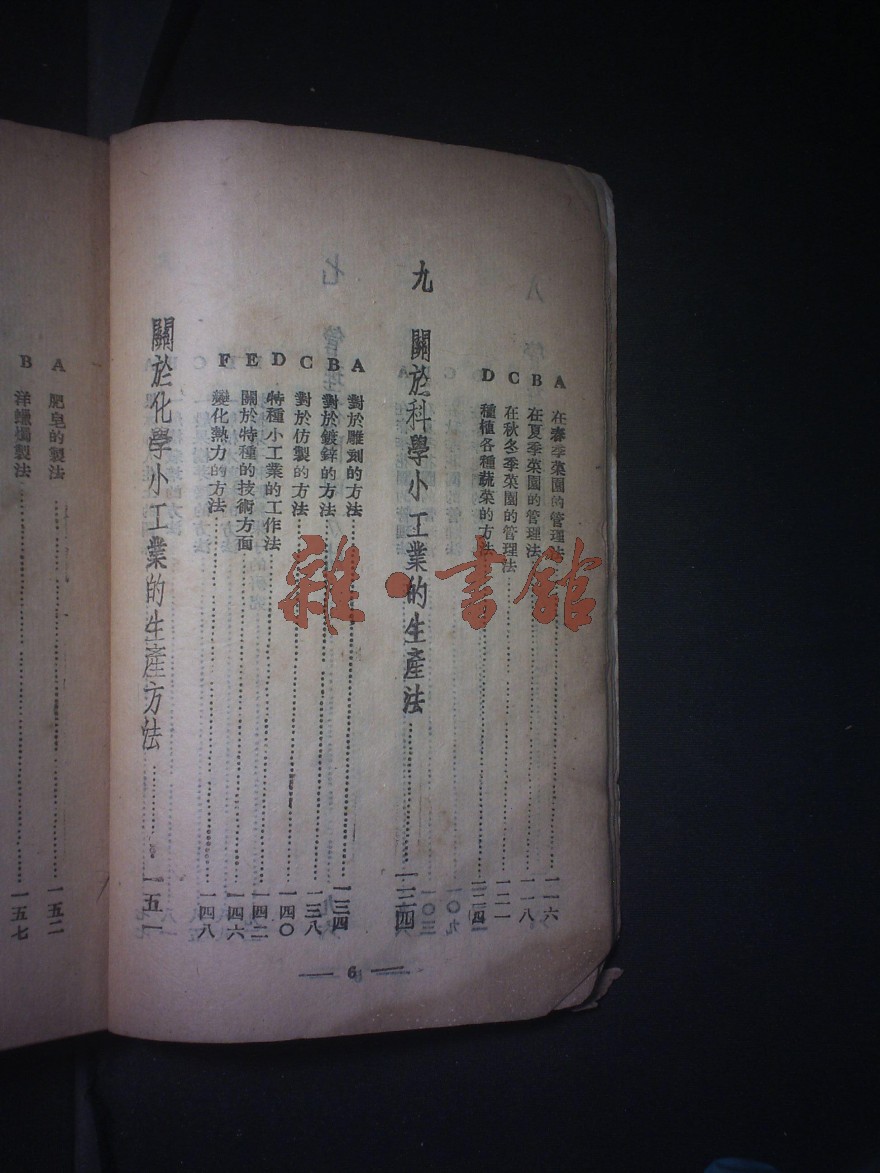 A 在春季菜園的管理法……一一六
B 在夏季菜園的管理法……一一八
C 在秋冬季菜園的管理法……一二一
D 種植各種蔬菜的方法……
九 關於科學小工業的生產法……一三四
A 對於雕刻的方法……一三四
B 對於鍍鋅的方法……一三八
C 對於仿製的方法……一四〇
D 特種小工業的工作法……一四二
E 關於特種的技術方面……一四六
F 變化熱力的方法……一四八
關於化學小工業的生產方法……一五一
— 6 —
A 肥皂的製法……一五二
B 洋蠟燭製法……一五七
雜·書館